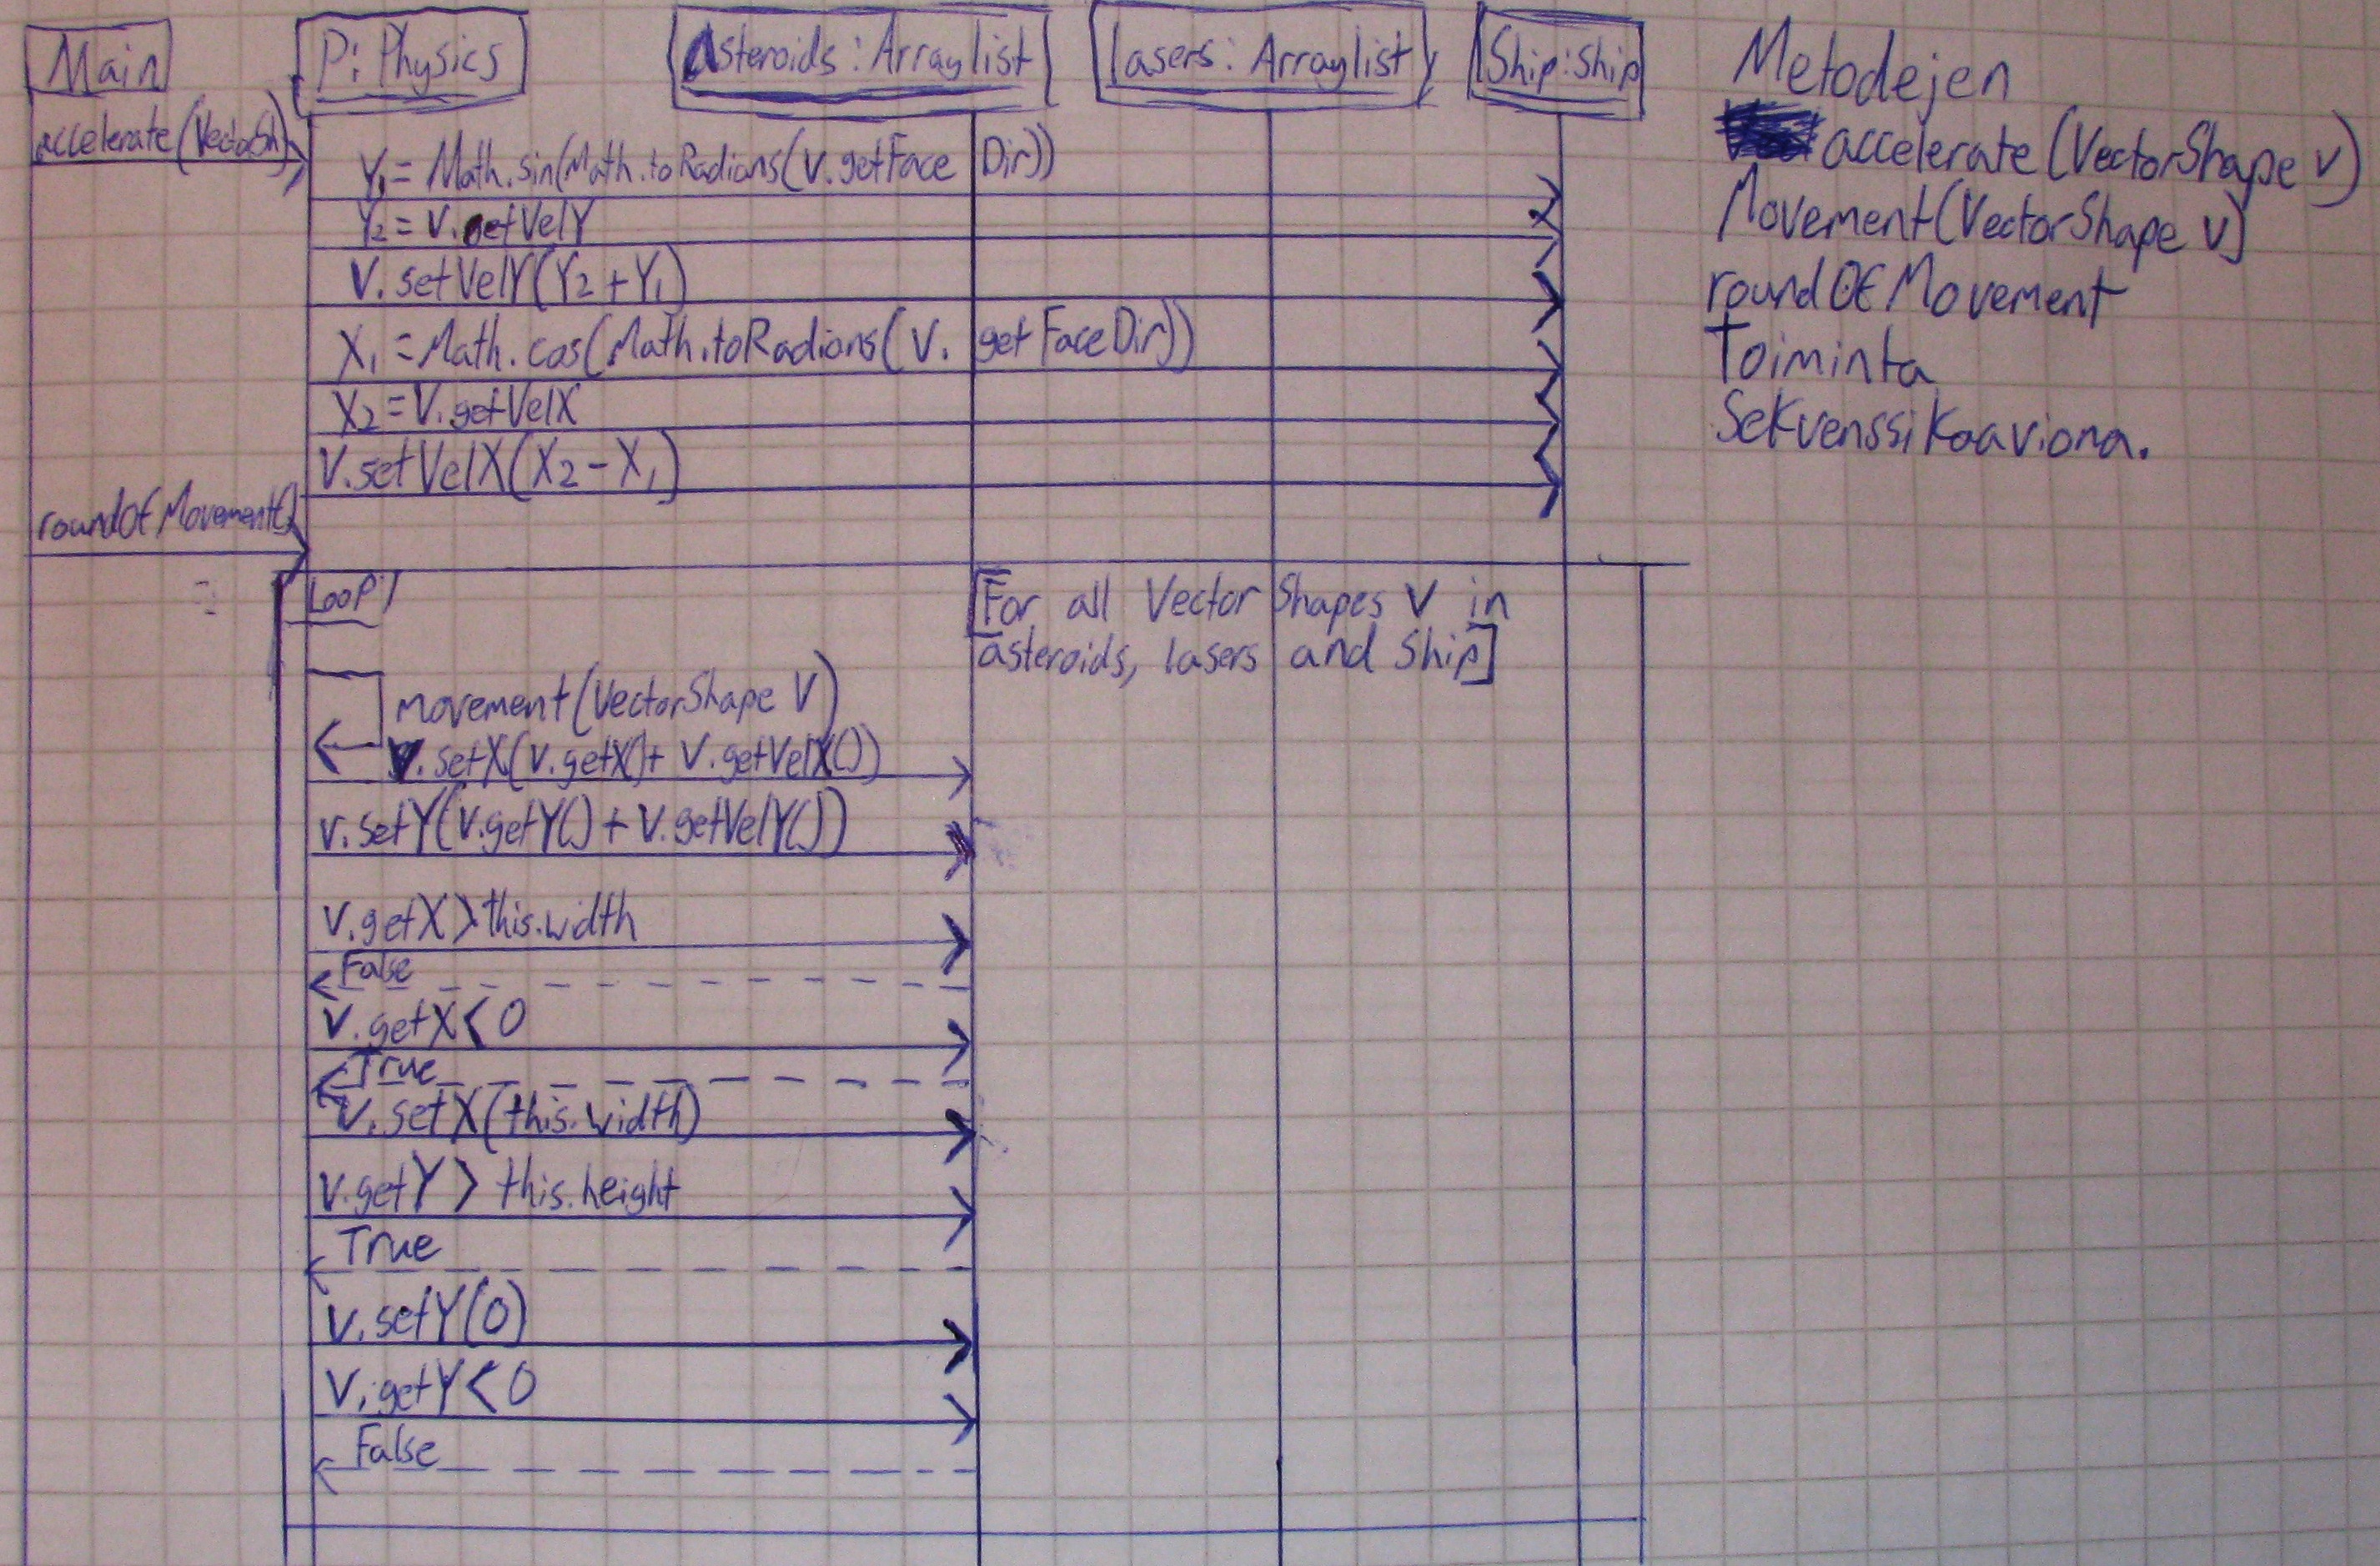 Main
P: Physics
Asteroids: Arraylist
lasers: Arraylist
Ship: Ship
Metodejen
accelerate(VectorShape v)
Movement(VectorShape v)
roundOfMovement
Toiminta
Sekvenssikaaviona.
accelerate(VectorSh)
Y1 = Math.sin(Math.toRadians(v.getFaceDir))
Y2 = V.getVelY
V.setVelY(Y2+Y1)
X1 = Math.cos(Math.toRadians(v.getFaceDir))
X2 = V.getVelX
V.setVelX(X2-X1)
roundOfMovement()
Loop
[For all Vector Shapes V in
asteroids, lasers and Ship]
movement(VectorShape V)
V.setX(v.getX()+ V.getVelX())
v.setY(v.getY() + V.getVelY())
V.getX > this.width
False
V.getX < 0
True
V.setX(this.width)
V.getY > this.height
True
V.setY(0)
V.getY < 0
False